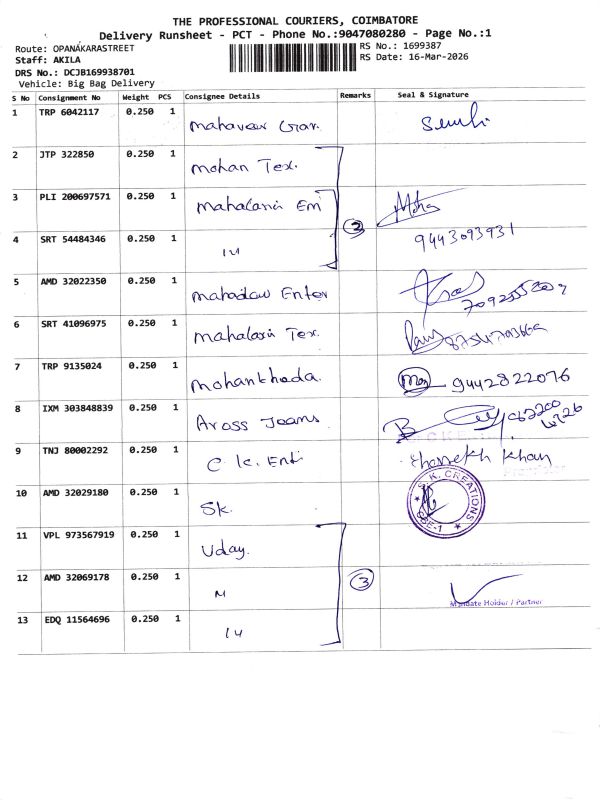 THE PROFESSIONAL COURIERS, COIMBATORE
Delivery Runsheet - PCT - Phone No.:9047080280 - Page No.:1
Route: OPANAKARASTREET
RS No.: 1699387
Staff: AKILA
RS Date: 16-Mar-2026
DRS No.: DCJB169938701
Vehicle: Big Bag Delivery
S No Consignment No Weight PCS Consignee Details Remarks Seal & Signature
1 TRP 6042117 0.250 1 Mahaveer
2 JTP 322850 0.250 1 Mohan Tex.
3 PLI 200697571 0.250 1 Mahalaxmi Em
4 SRT 54484346 0.250 1 9443093931
5 AMD 32022350 0.250 1 Enter
6 SRT 41096975 0.250 1 Mahalaxmi Tex.
7 TRP 9135024 0.250 1 Mohankhada. 9442822076
8 IXM 303848839 0.250 1 Aross Jeans
9 TNJ 80002292 0.250 1 C.K. Enti Khan
10 AMD 32029180 0.250 1 SK. S.K. CREATIONS CBE-1
11 VPL 973567919 0.250 1 Uday.
12 AMD 32069178 0.250 1 3 Mandate Holder / Partner
13 EDQ 11564696 0.250 1